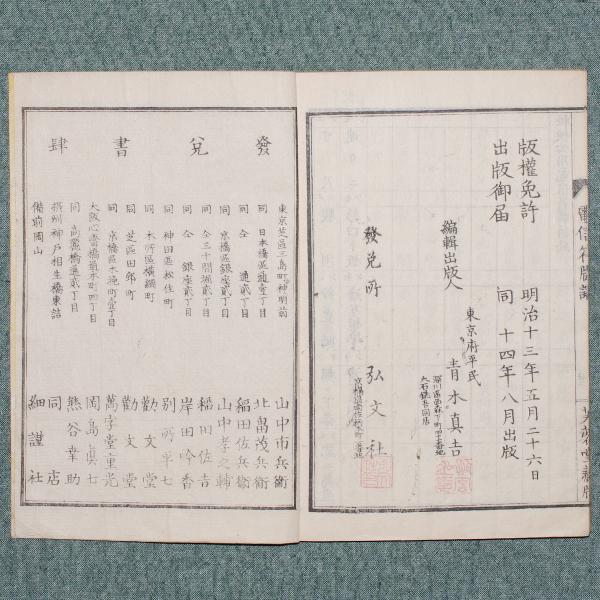 版權免許 明治十三年五月二十六日
出版御届 同 十四年八月出版
編輯出版人 東京府平民 青木真吉
發兌所 弘文社
發兌書肆
東京芝區三島町神明前 山中市兵衛
同 日本橋區通壹丁目 北畠茂兵衛
同 仝 通貳丁目 稲田佐兵衛
同 京橋區銀座貳丁目 山中孝之輔
同 仝 三十間堀貳丁目 稲田佐吉
同 仝 銀座貳丁目 岸田吟香
同 神田區松住町 別所平七
同 本所區横網町 勸文堂
同 芝區田町 勸文堂
同 京橋區木挽町壹丁目 萬字堂重光
大阪心斎橋 町四丁目 岡島真七
同 高麗橋通貳丁目 熊谷幸助
摂州神戸相生橋東詰 同店
備前岡山 細謹社